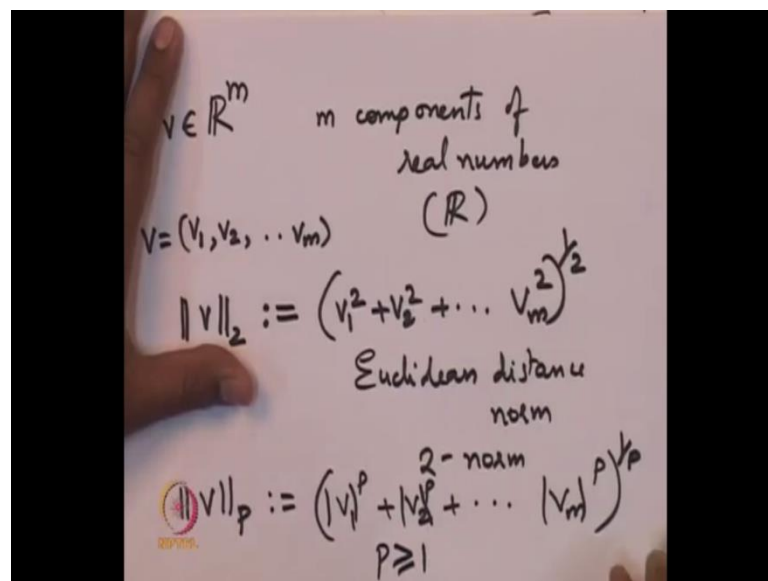 v ∈ ℝ^m   m components of
real numbers
(ℝ)
v = (v₁, v₂, .. v_m)
‖v‖₂ := (v₁² + v₂² + ... v_m²)^1/2
Euclidean distance
norm
2-norm
‖v‖_p := (|v₁|^p + |v₂|^p + ... |v_m|^p)^1/p
p ≥ 1
NPTEL